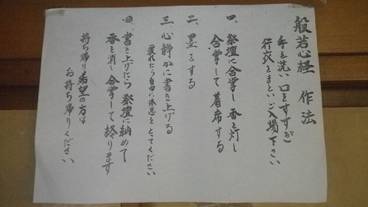 般若心経 作法
手を洗い 口をすすぎ
行衣をまとい ご入場下さい
一、祭壇に合掌し 香を灯し
合掌して 着席する
二、墨をする
三、心静かに書き上げる
疲れたら自由に休息を とってください
四、書き上げたら 祭壇に納めて
香を消し 合掌して終ります
持ち帰り希望の方は
お持ち帰りください